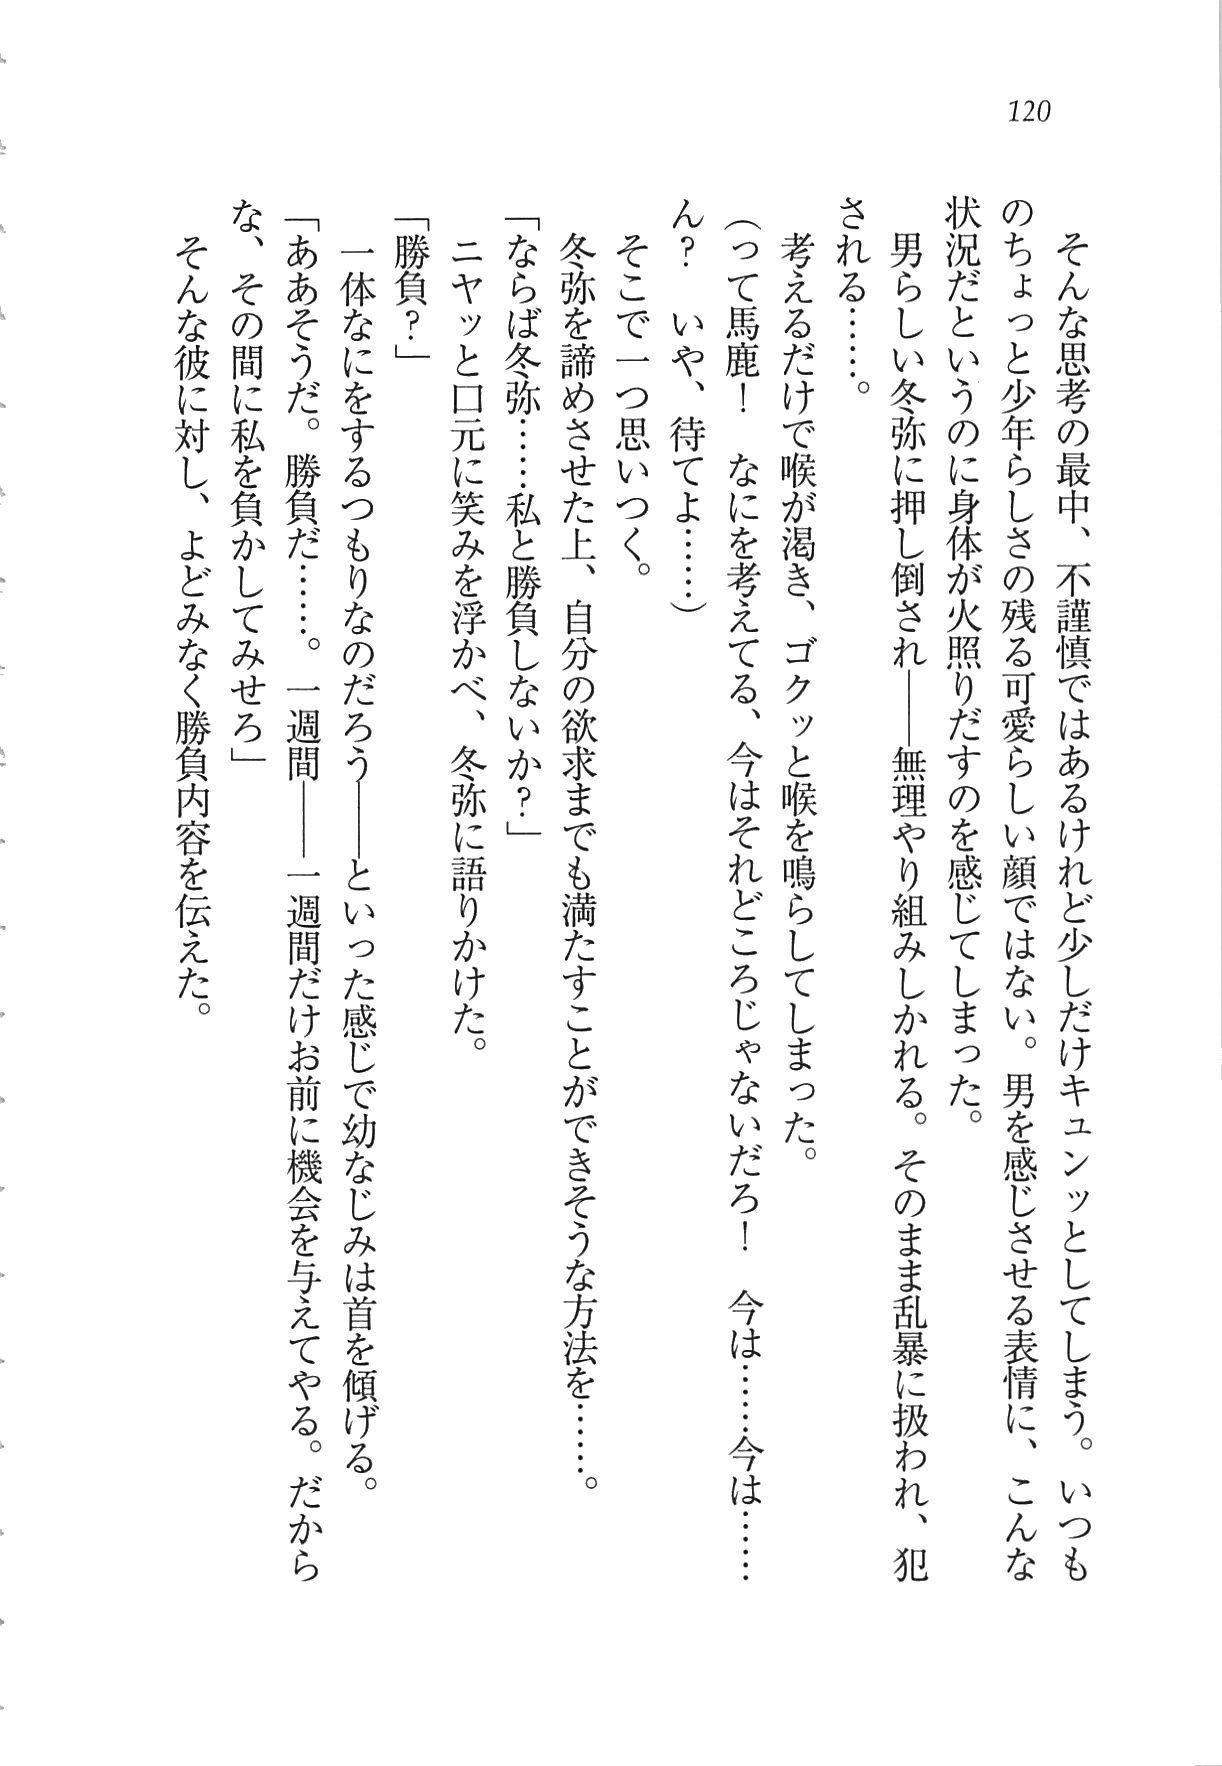 120
　そんな思考の最中、不謹慎ではあるけれど少しだけキュンッとしてしまう。いつも
のちょっと少年らしさの残る可愛らしい顔ではない。男を感じさせる表情に、こんな
状況だというのに身体が火照りだすのを感じてしまった。
　男らしい冬弥に押し倒され――無理やり組みしかれる。そのまま乱暴に扱われ、犯
される……。
　考えるだけで喉が渇き、ゴクッと喉を鳴らしてしまった。
（って馬鹿！　なにを考えてる、今はそれどころじゃないだろ！　今は……今は……
ん？　いや、待てよ……）
　そこで一つ思いつく。
　冬弥を諦めさせた上、自分の欲求までも満たすことができそうな方法を……。
「ならば冬弥……私と勝負しないか？」
　ニヤッと口元に笑みを浮かべ、冬弥に語りかけた。
「勝負？」
　一体なにをするつもりなのだろう――といった感じで幼なじみは首を傾げる。
「ああそうだ。勝負だ……。一週間――一週間だけお前に機会を与えてやる。だから
な、その間に私を負かしてみせろ」
　そんな彼に対し、よどみなく勝負内容を伝えた。